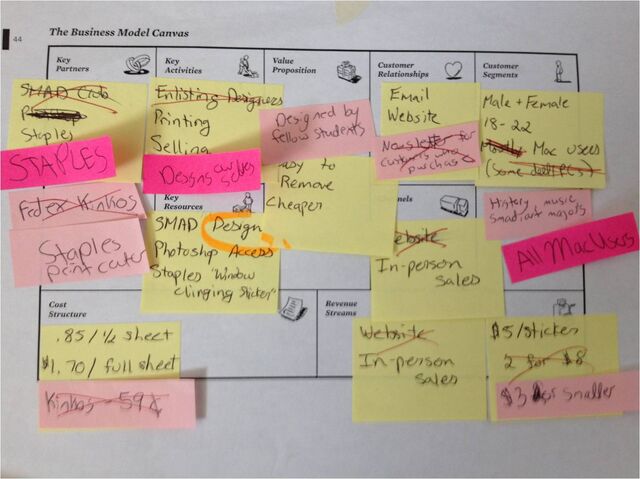 44
The Business Model Canvas
Key
Partners
SMAD Club
Staples
STAPLES
Fedex Kinkos
Staples
print center
Key
Activities
Enlisting Designers
Printing
Selling
Designs ourselves
Key
Resources
SMAD Design
Photoshop Access
Staples "Window
Clinging Sticker"
Value
Proposition
Designed by
fellow students
Easy to
Remove
Cheaper
Customer
Relationships
Email
Website
Newsletter for
customers who
purchase
Website
In-person
sales
Customer
Segments
Male + Female
18-22
Mostly Mac users
(Some dell PCs)
History, music
smad/art majors
All Mac Users
Cost
Structure
.85/½ sheet
$1.70/full sheet
Kinkos - 59¢
Revenue
Streams
Website
In-person
sales
$5/sticker
2 for $8
$3 for smaller